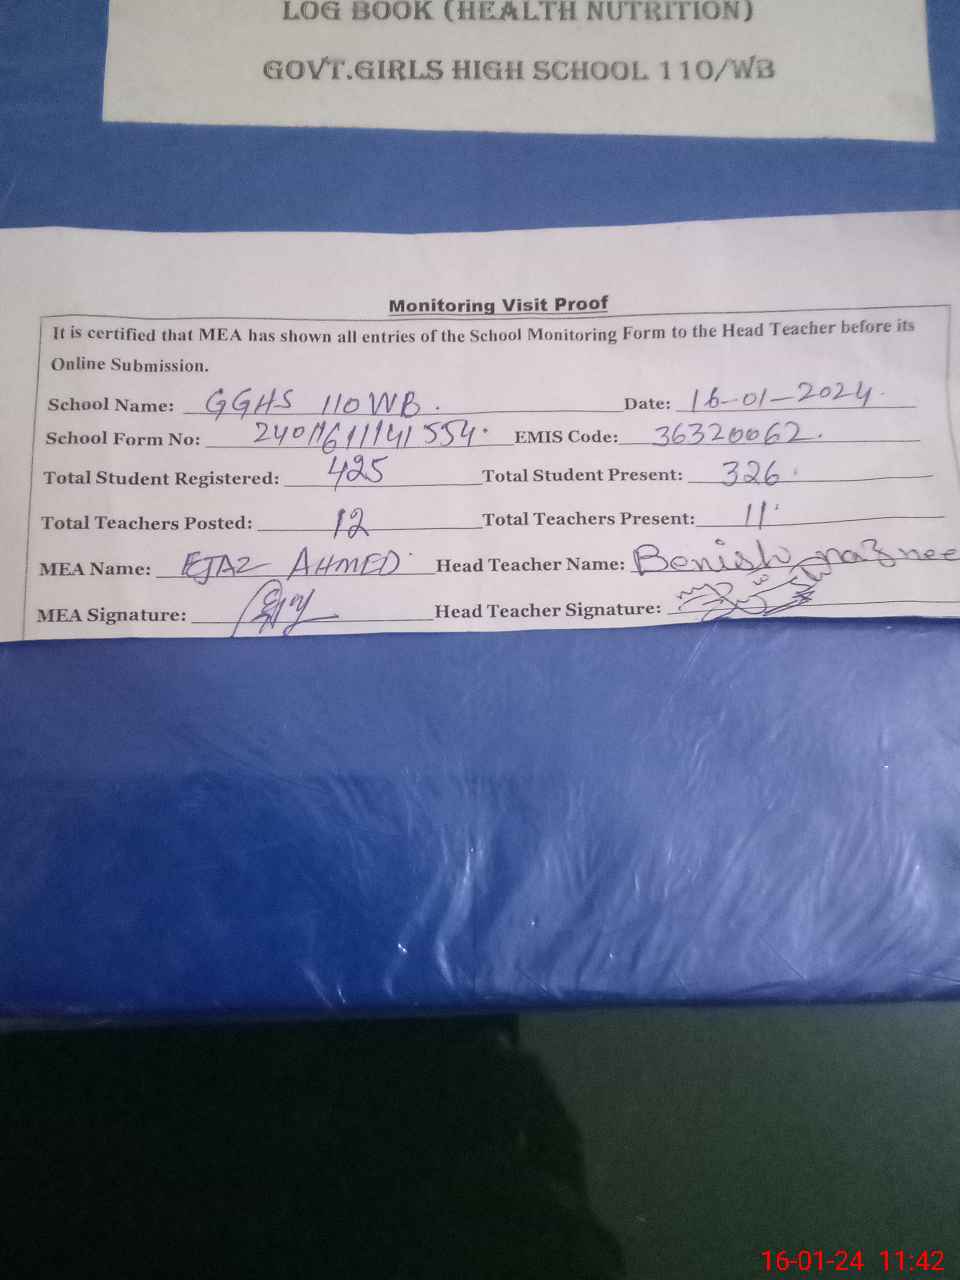 LOG BOOK (HEALTH NUTRITION)
GOVT.GIRLS HIGH SCHOOL 110/WB
Monitoring Visit Proof
It is certified that MEA has shown all entries of the School Monitoring Form to the Head Teacher before its
Online Submission.
School Name: GGHS 110 WB. Date: 16-01-2024.
School Form No: EMIS Code: 36320062.
Total Student Registered: 425 Total Student Present: 326
Total Teachers Posted: 12 Total Teachers Present: 11
MEA Name: EJAZ AHMED Head Teacher Name: Benish naznee
MEA Signature: Head Teacher Signature:
16-01-24 11:42